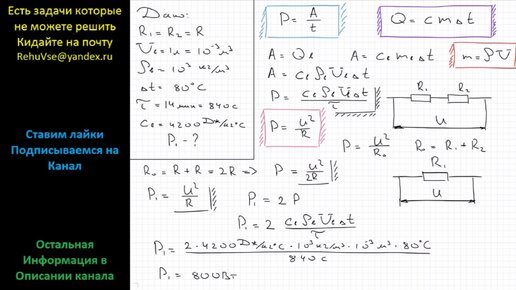 Есть задачи которые
не можете решить
Кидайте на почту
RehuVse@yandex.ru
Ставим лайки
Подписываемся на
Канал
Остальная
Информация в
Описании канала
Дано:
R₁ = R₂ = R
Vв = 1л = 10⁻³ м³
ρв = 10³ кг/м³
Δt = 80°C
τ = 14 мин = 840 с
Cв = 4200 Дж/кг°C
P₁ - ?
P = A/t
Q = cmΔt
A = Qв
A = Cв mв Δt
m = ρV
A = Cв ρв Vв Δt
P = Cв ρв Vв Δt / τ
P = U²/R
P = U²/R₀
R₀ = R₁ + R₂
R₁ R₂
U
R₁
U
R₀ = R + R = 2R ⇒ P = U²/2R
P₁ = U²/R
P₁ = 2P
P₁ = 2 Cв ρв Vв Δt / τ
P₁ = 2 · 4200 Дж/кг°C · 10³ кг/м³ · 10⁻³ м³ · 80°C / 840 с
P₁ = 800 Вт